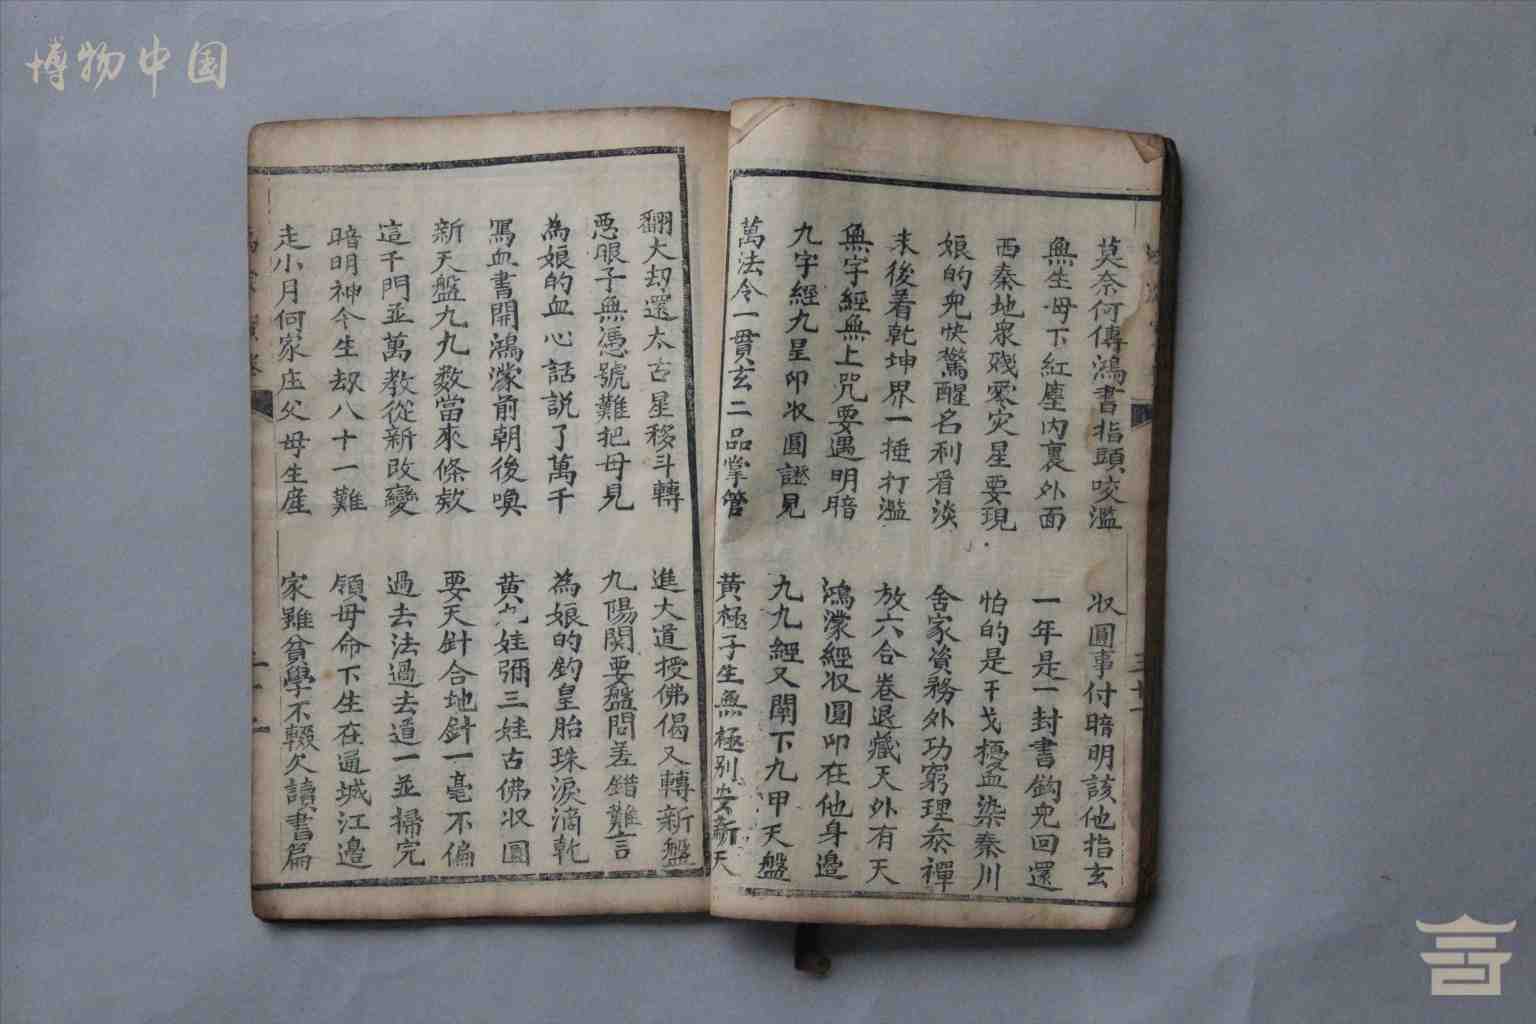 博物中国
莫奈何傳鴻書指頭咬濫 収圓事付暗明該他指玄
無生母下紅塵内裏外面 一年是一封書鈎兒回還
西秦地衆殘零灾星要現 怕的是干戈擾孟染秦川
娘的兒快驚醒名利看淡 舍家資務外功窮理叅禪
末後着乾坤界一捶打濫 放六合卷退藏天外有天
無字經無上咒要遇明暗 鴻濛經収圓印在他身邊
九字經九星印収圓證見 九九經又開下九甲天盤
萬法令一貫玄二品掌管 黄極子生無極別安新天
翻大劫還太古星移斗轉 進大道授佛偈又轉新盤
悪眼子無憑號難把母見 九陽関要盤問差錯難言
為娘的血心話説了萬千 為娘的釣皇胎珠淚滴乾
寫血書開鴻濛前朝後喚 黄九娃彌三娃古佛収圓
新天盤九九数當來條欵 要天針合地針一毫不偏
這千門並萬教從新改變 過去法過去道一並掃完
暗明神今生劫八十一難 領母命下生在通城江邊
走小月何家庄父母生産 家雖貧學不輟欠讀書篇